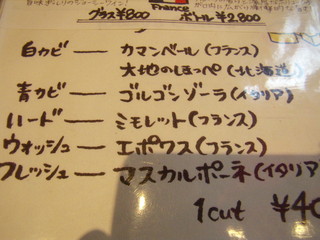 France
グラス¥800 ボトル¥2,800
白カビ — カマンベール(フランス)
大地のほっぺ(北海道)
青カビ — ゴルゴンゾーラ(イタリア)
ハード — ミモレット(フランス)
ウォッシュ — エポワス(フランス)
フレッシュ — マスカルポーネ(イタリア
1cut ¥40